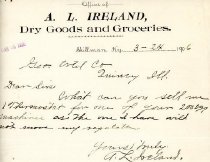 Office of
A. L. IRELAND,
Dry Goods and Groceries.
Skillman Ky, 3-24 1906
Geo Ertel Co
Quincy Ill
Dear Sirs
What can you sell me
1 Thermostat for one of your 200 egg
machine as the one I have will
not move my regulator
Yours Truly
A. L. Ireland.